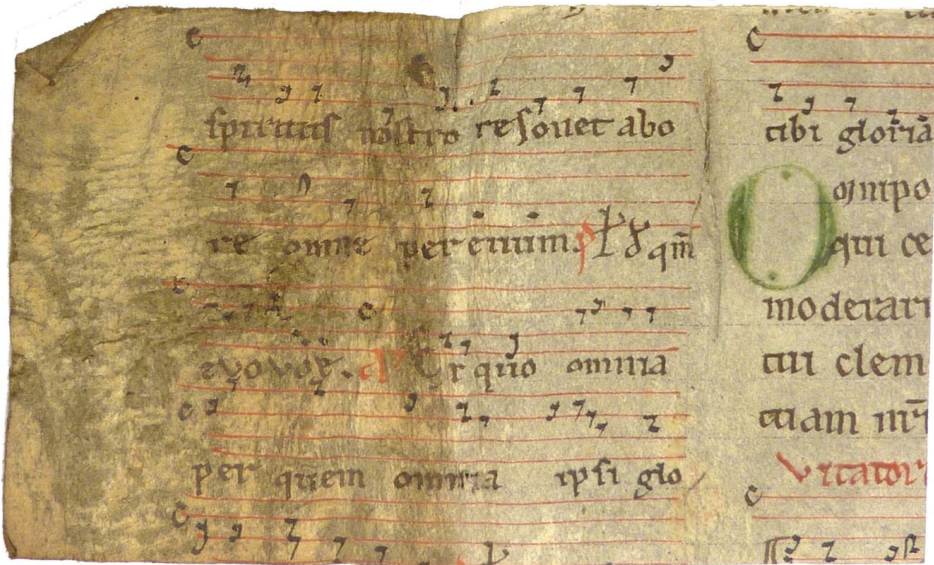 spiritus nostro resonet abo
re omne per euum. p̄ ꝟ qm̄
evovae. a Ex quo omnia
per quem omnia ipsi glo
tibi gloriā
Omnipo
qui ce
moderari
cui clem
ciam nr̄i
Vitator